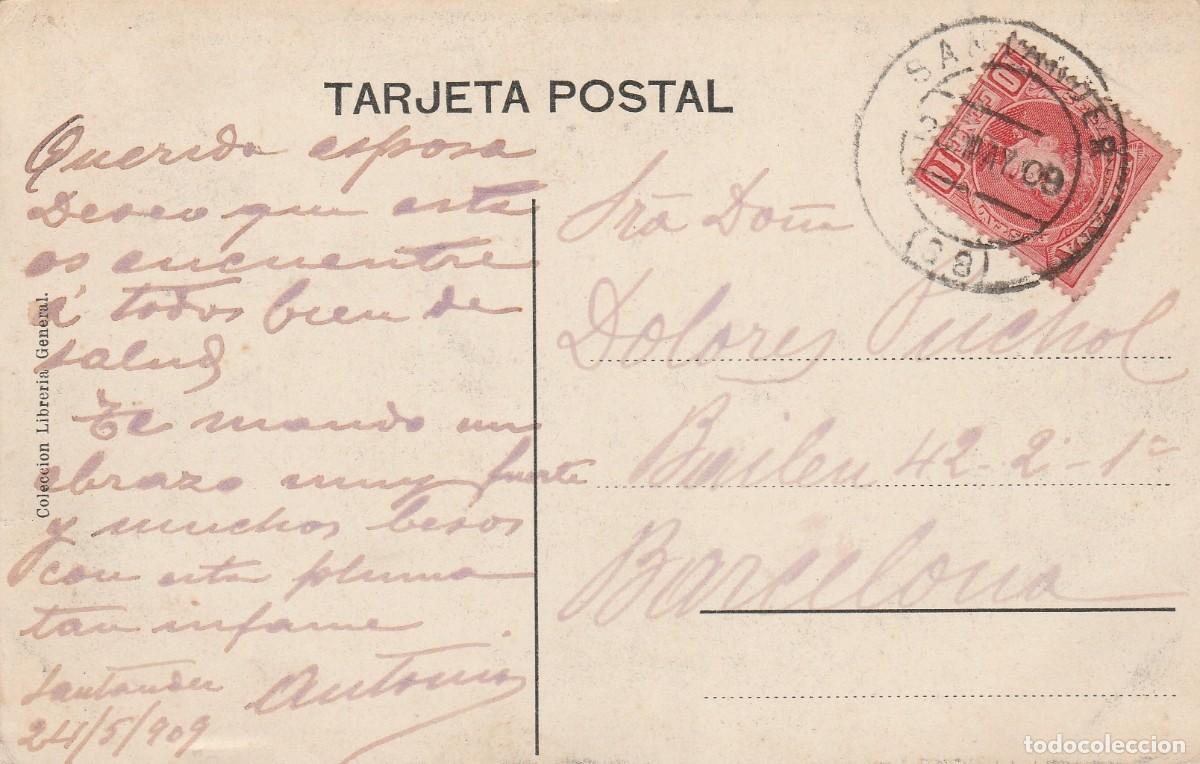 TARJETA POSTAL
Querida esposa
Deseo que esta
os encuentre
á todos bien de
salud
Te mando un
abrazo muy fuerte
y muchos besos
con esta pluma
tan infame.
Santander Antonio
24/5/909
Coleccion Libreria General.
Sra Doña
Dolores Puchol
Bailen 42-2º-1ª
Barcelona
SANTANDER
MAY 09
(38)
10
10
todocoleccion